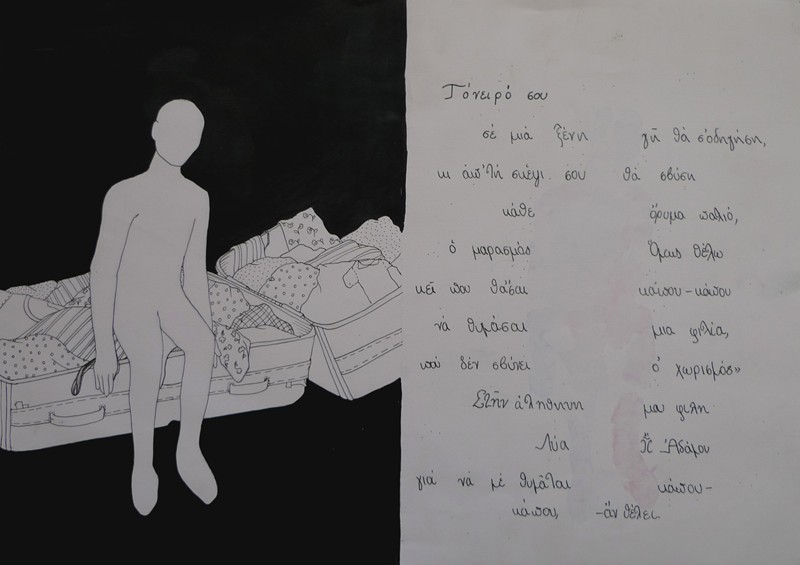 Τὄνειρό σου
σέ μιά ξένη γῆ θά σ'οδηγήση,
κι ἀπ'τή σκέψι σου θά σβύση
κάθε ὄραμα παλιό,
ὁ μαρασμός Ὅμως θέλω
κεῖ που θἆσαι κάπου-κάπου
νά θυμᾶσαι μια φιλία,
πού δέν σβύνει ὁ χωρισμός»
Στήν ἀληθινη μου φιλη
Λύα Ἀδάμου
γιά νά μέ θυμᾶται κάπου-
κάπου, -ἄν θέλει.